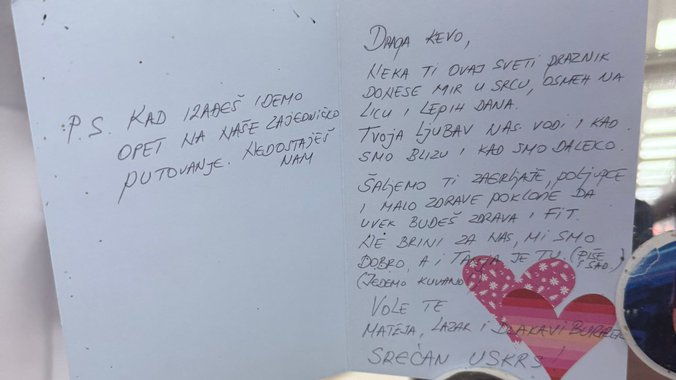 P.S. KAD IZAĐEŠ IDEMO
OPET NA NAŠE ZAJEDNIČKO
PUTOVANJE. NEDOSTAJEŠ
NAM
DRAGA KEVO,
NEKA TI OVAJ SVETI PRAZNIK
DONESE MIR U SRCU, OSMEH NA
LICU I LEPIH DANA.
TVOJA LJUBAV NAS VODI I KAD
SMO BLIZU I KAD SMO DALEKO.
ŠALJEMO TI ZAGRLJAJE, POLJUPCE
I MALO ZDRAVE POKLONE DA
UVEK BUDEŠ ZDRAVA I FIT.
NE BRINI ZA NAS, MI SMO
DOBRO, A I TANJA JE TU, (PIŠE
I SAD)
(JEDEMO KUVANO
VOLE TE
MATEJA, LAZAR I DLAKAVI
SREĆAN USKRS!